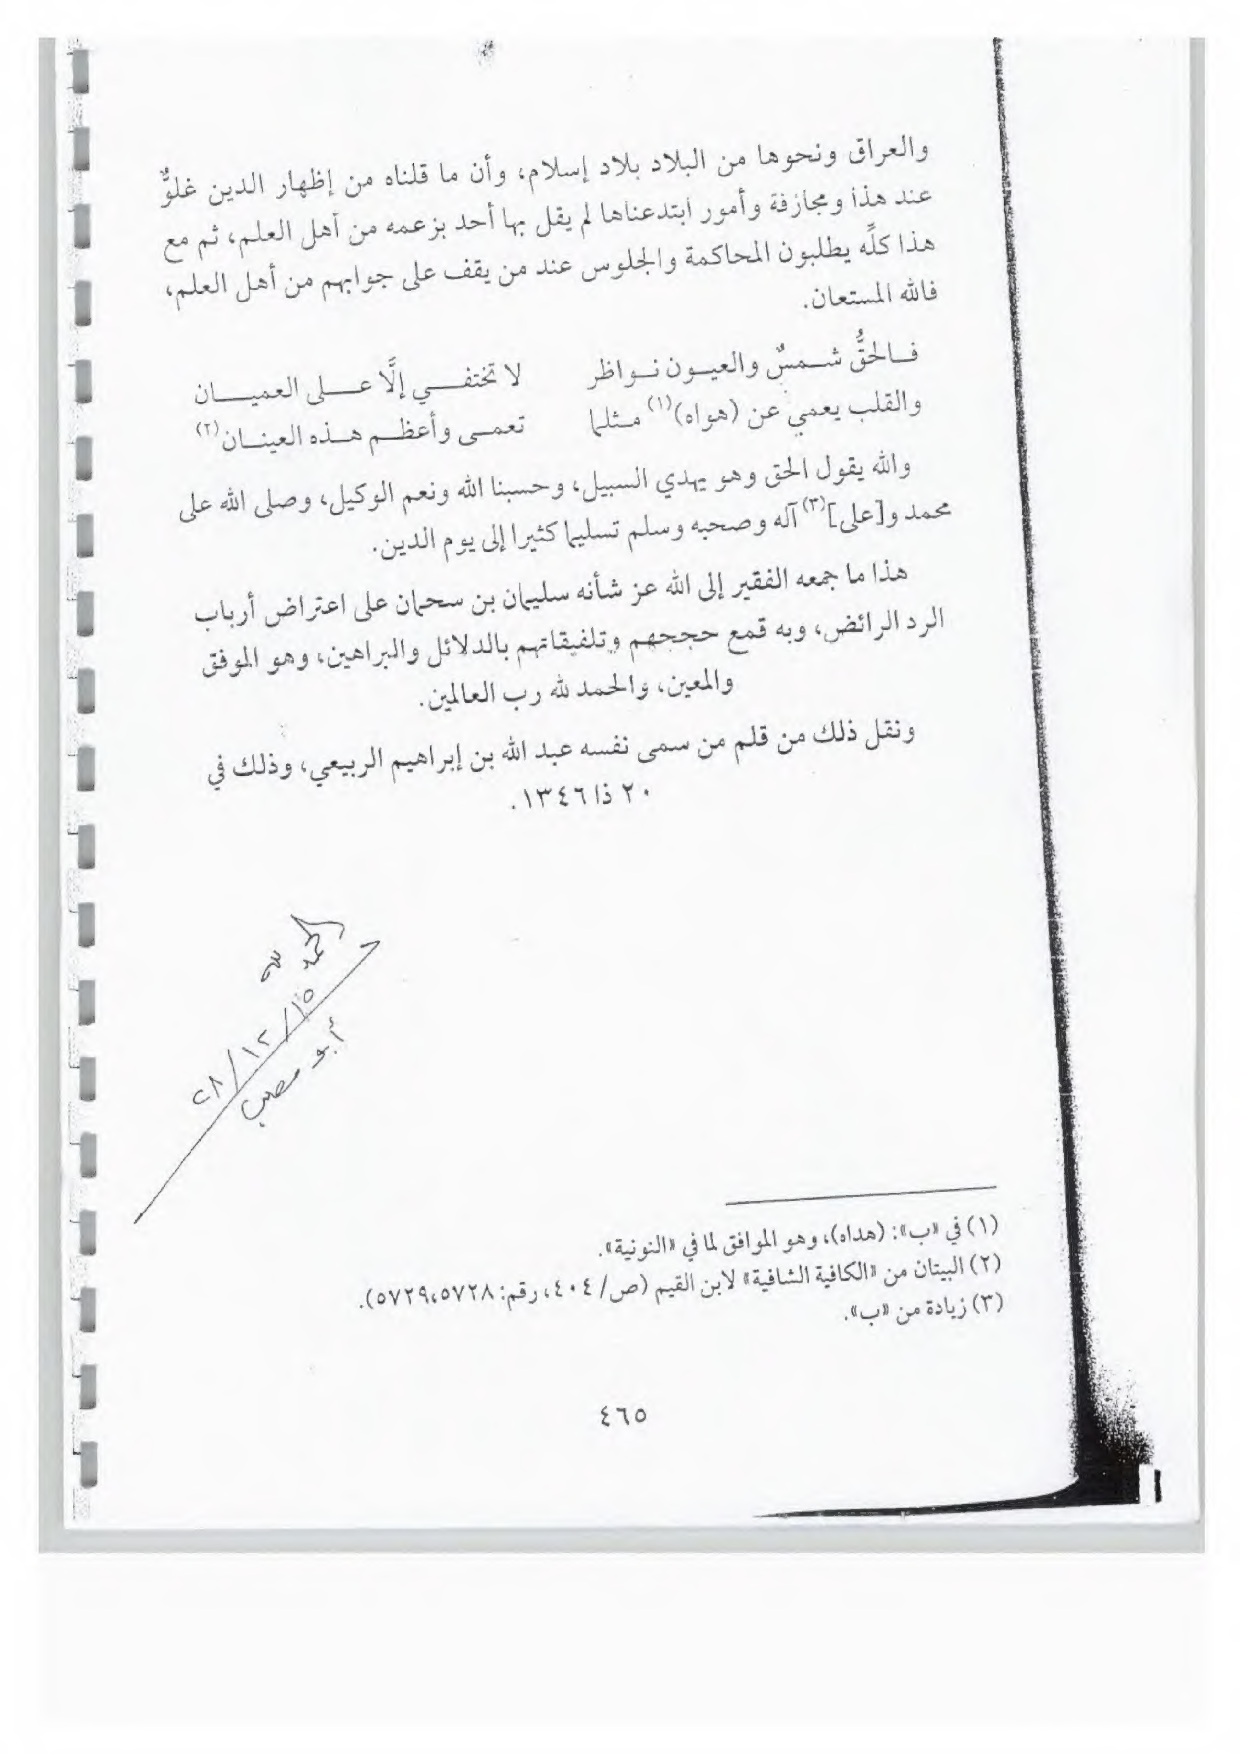 والعراق ونحوها من البلاد بلاد إسلام، وأن ما قلناه من إظهار الدين غلوٌّ
عند هذا ومجازفة وأمور ابتدعناها لم يقل بها أحد بزعمه من أهل العلم، ثم مع
هذا كلِّه يطلبون المحاكمة والجلوس عند من يقف على جوابهم من أهل العلم،
فالله المستعان.
فـالحقُّ شـمسٌ والعيـون نـواظر لا تختفـي إلَّا عـلى العميـان
والقلب يعمي عن (هواه)(١) مـثلما تعمـى وأعظـم هـذه العينـان(٢)
والله يقول الحق وهو يهدي السبيل، وحسبنا الله ونعم الوكيل، وصلى الله على
محمد و[على](٣) آله وصحبه وسلم تسليما كثيرا إلى يوم الدين.
هذا ما جمعه الفقير إلى الله عز شأنه سليمان بن سحمان على اعتراض أرباب
الرد الرائض، وبه قمع حججهم وتلفيقاتهم بالدلائل والبراهين، وهو الموفق
والمعين، والحمد لله رب العالمين.
ونقل ذلك من قلم من سمى نفسه عبد الله بن إبراهيم الربيعي، وذلك في
٢٠ ذا ١٣٤٦.
الحمد لله
٢٨/١٢/١٥
أبو مصعب
(١) في «ب»: (هداه)، وهو الموافق لما في «النونية».
(٢) البيتان من «الكافية الشافية» لابن القيم (ص/ ٤٠٤، رقم: ٥٧٢٨،٥٧٢٩).
(٣) زيادة من «ب».
٤٦٥